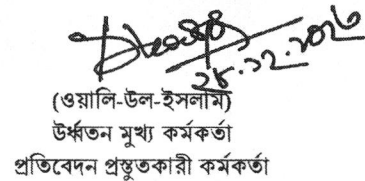 ২৮.১২.২০২৬
(ওয়ালি-উল-ইসলাম)
উর্ধ্বতন মুখ্য কর্মকর্তা
প্রতিবেদন প্রস্তুতকারী কর্মকর্তা